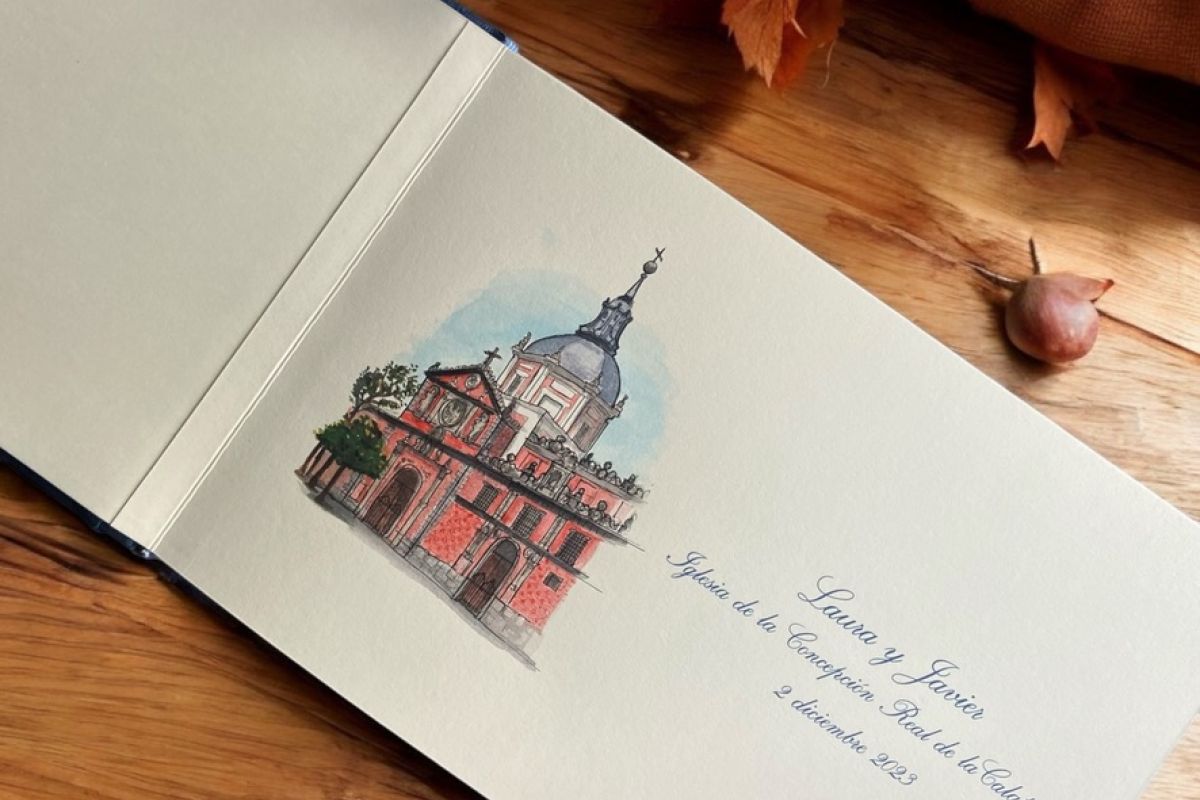 Laura y Javier
Iglesia de la Concepción Real de la
2 diciembre 2023